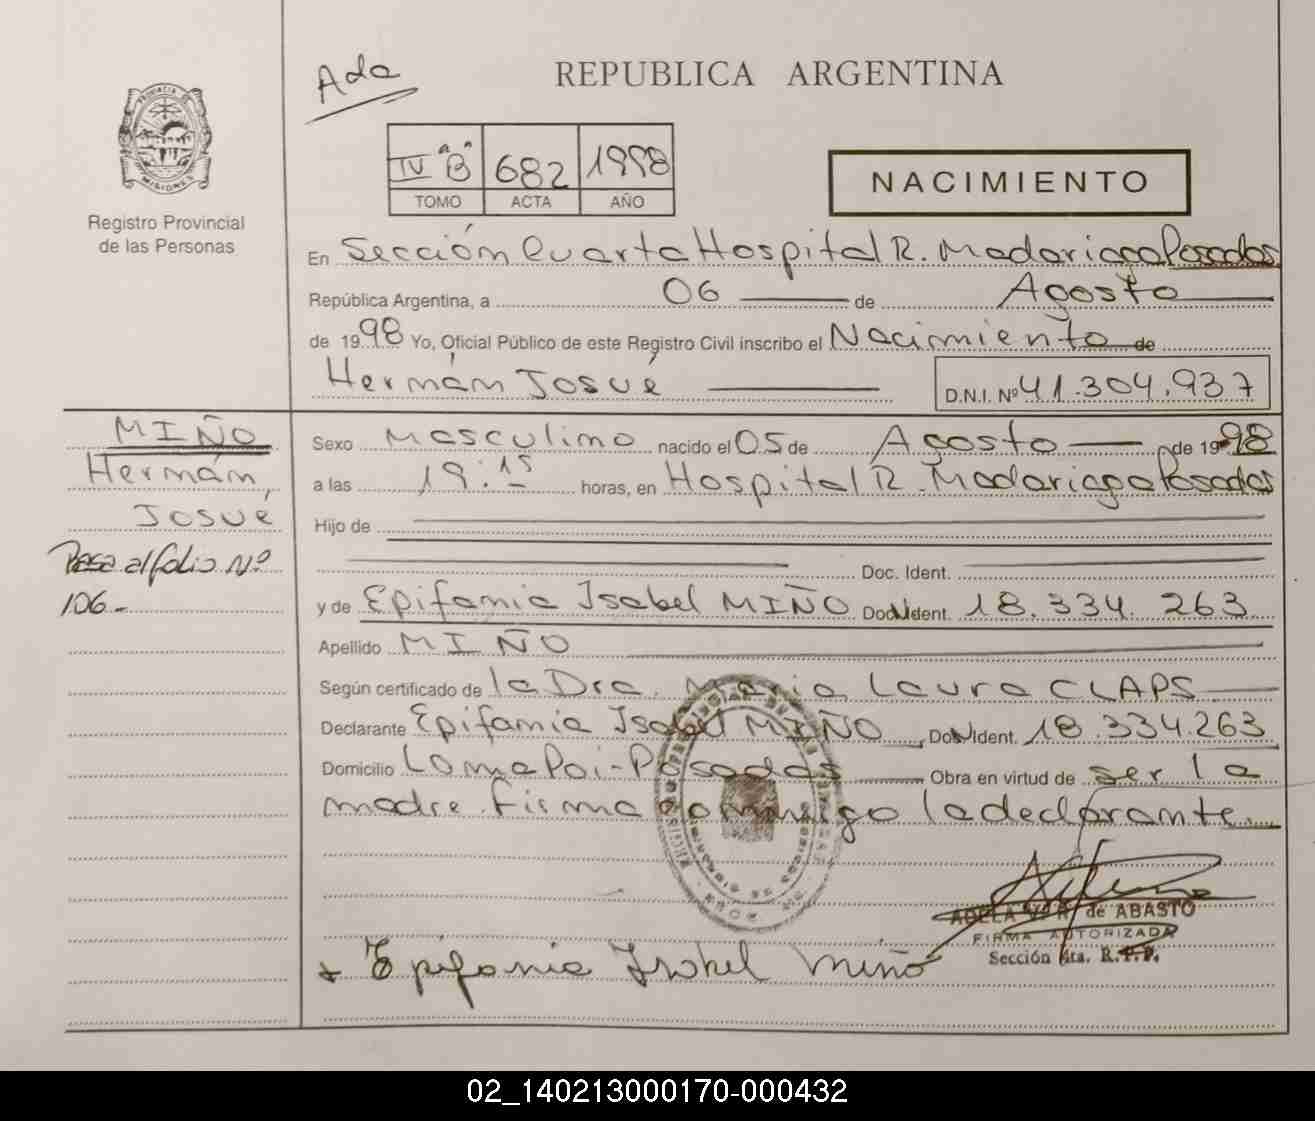 Ada
REPUBLICA ARGENTINA
PROVINCIA DE
MISIONES
Registro Provincial
de las Personas
IV "B" 682 1998
TOMO ACTA AÑO
NACIMIENTO
En Sección Cuarta Hospital R. Madariaga Posadas
República Argentina, a 06 de Agosto
de 1998 Yo, Oficial Público de este Registro Civil inscribo el Nacimiento de
Hernán Josué D.N.I. Nº 41.304.937
MIÑO
Hernán,
Josué
Pasa al folio Nº
106.-
Sexo Masculino nacido el 05 de Agosto de 1998
a las 19:15 horas, en Hospital R. Madariaga Posadas
Hijo de
Doc. Ident.
y de Epifania Isabel MIÑO Doc. Ident. 18.334.263
Apellido MIÑO
Según certificado de la Dra. Maria Laura CLAPS
Declarante Epifania Isabel MIÑO, Doc. Ident. 18.334.263
Domicilio Loma Poi-Posadas Obra en virtud de ser la
madre. firma conmigo la declarante.
ADELA de ABASTO
FIRMA AUTORIZADA
Sección 4ta. R.P.P.
Epifania Isabel Miño
02_140213000170-000432